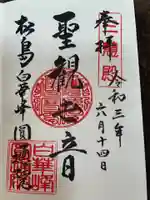 奉拝
三慧殿
令和三年
六月十四日
聖観世音
松島白華峰圓通院